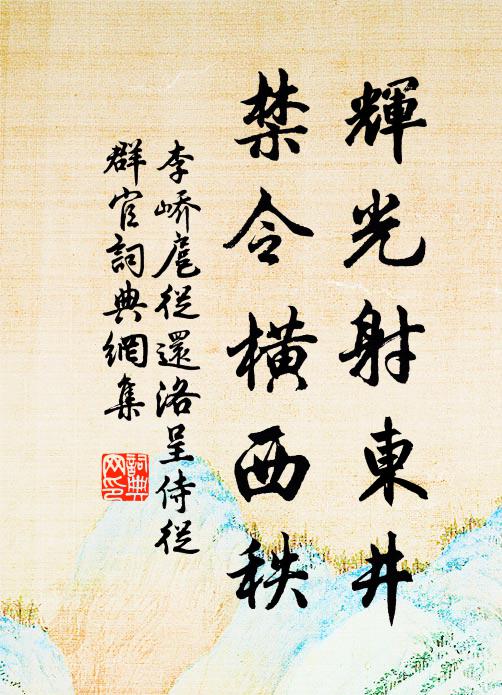 輝光射東井
禁令橫西秩
李嶠扈從還洛呈侍從
群官詞典網集
詞典网印